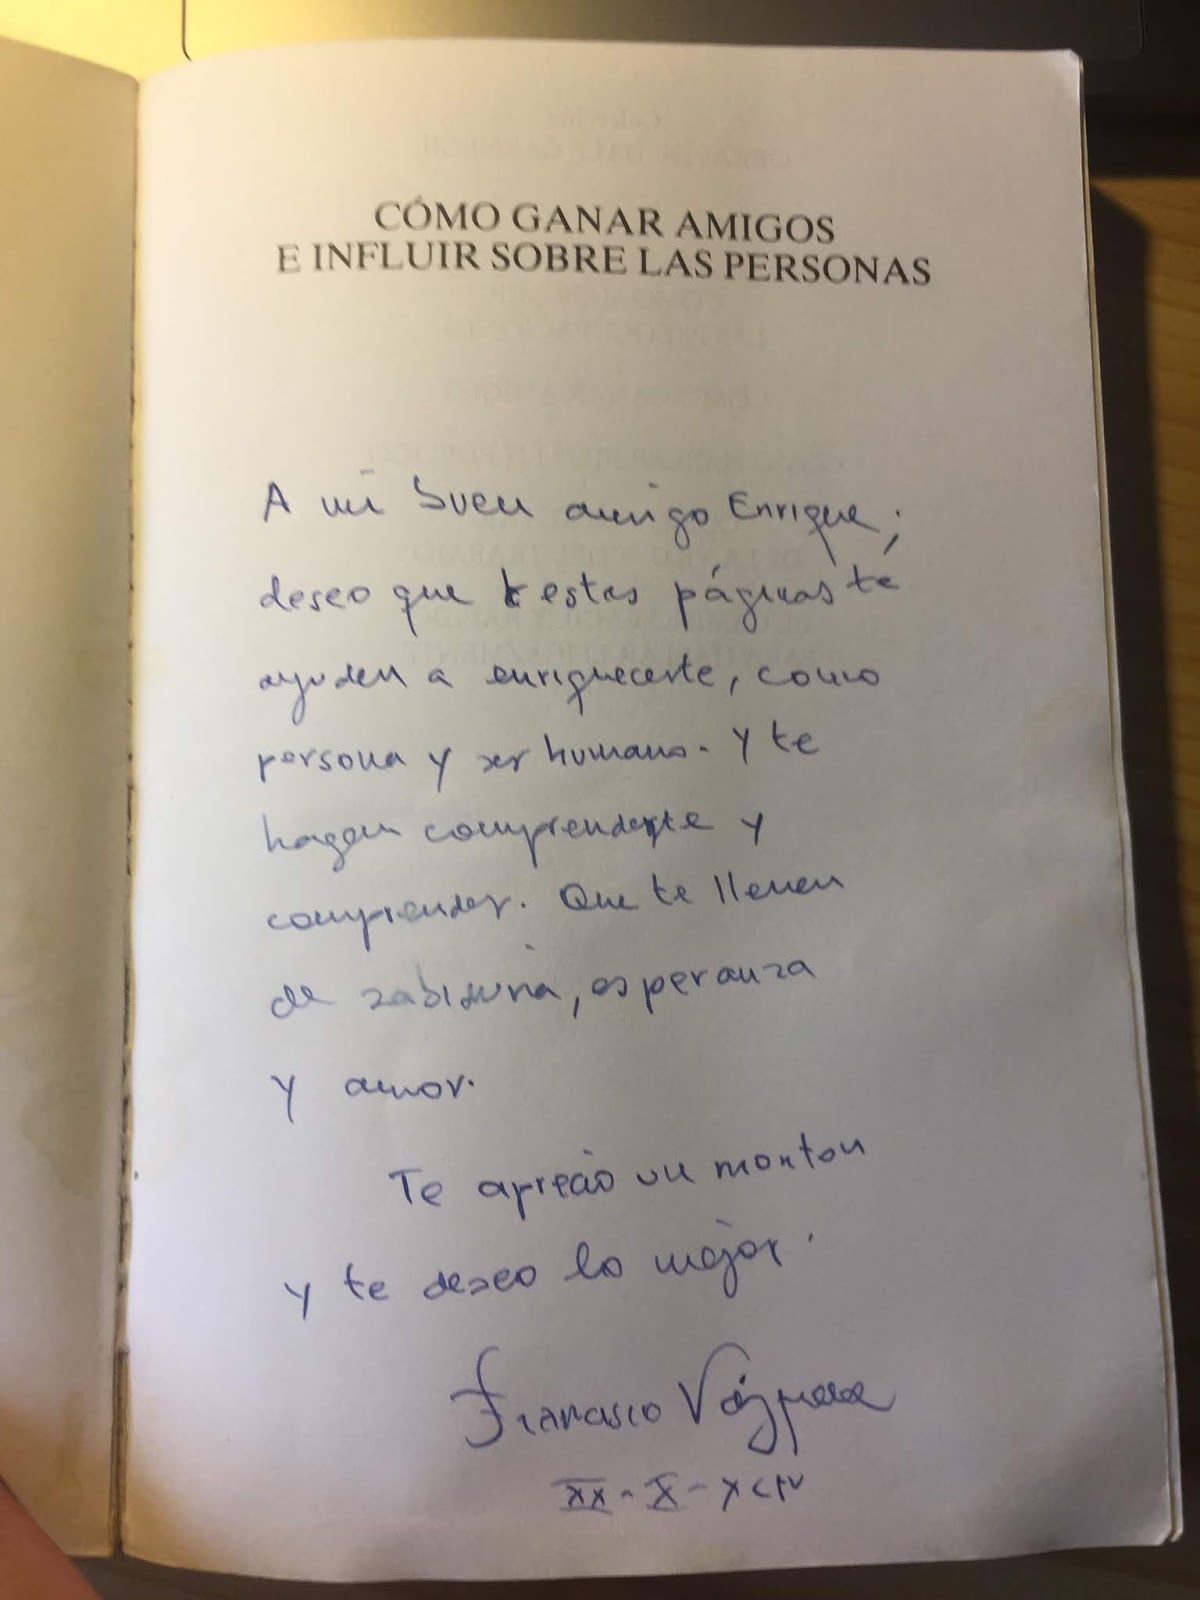 CÓMO GANAR AMIGOS
E INFLUIR SOBRE LAS PERSONAS
A mi buen amigo Enrique;
deseo que estas páginas te
ayuden a enriquecerte, como
persona y ser humano. Y te
hagan comprenderte y
comprender. Que te llenen
de sabiduria, esperanza
y amor.
Te aprecio un monton
y te deseo lo mejor.
Francisco Vázquez
XX - X - XCIV